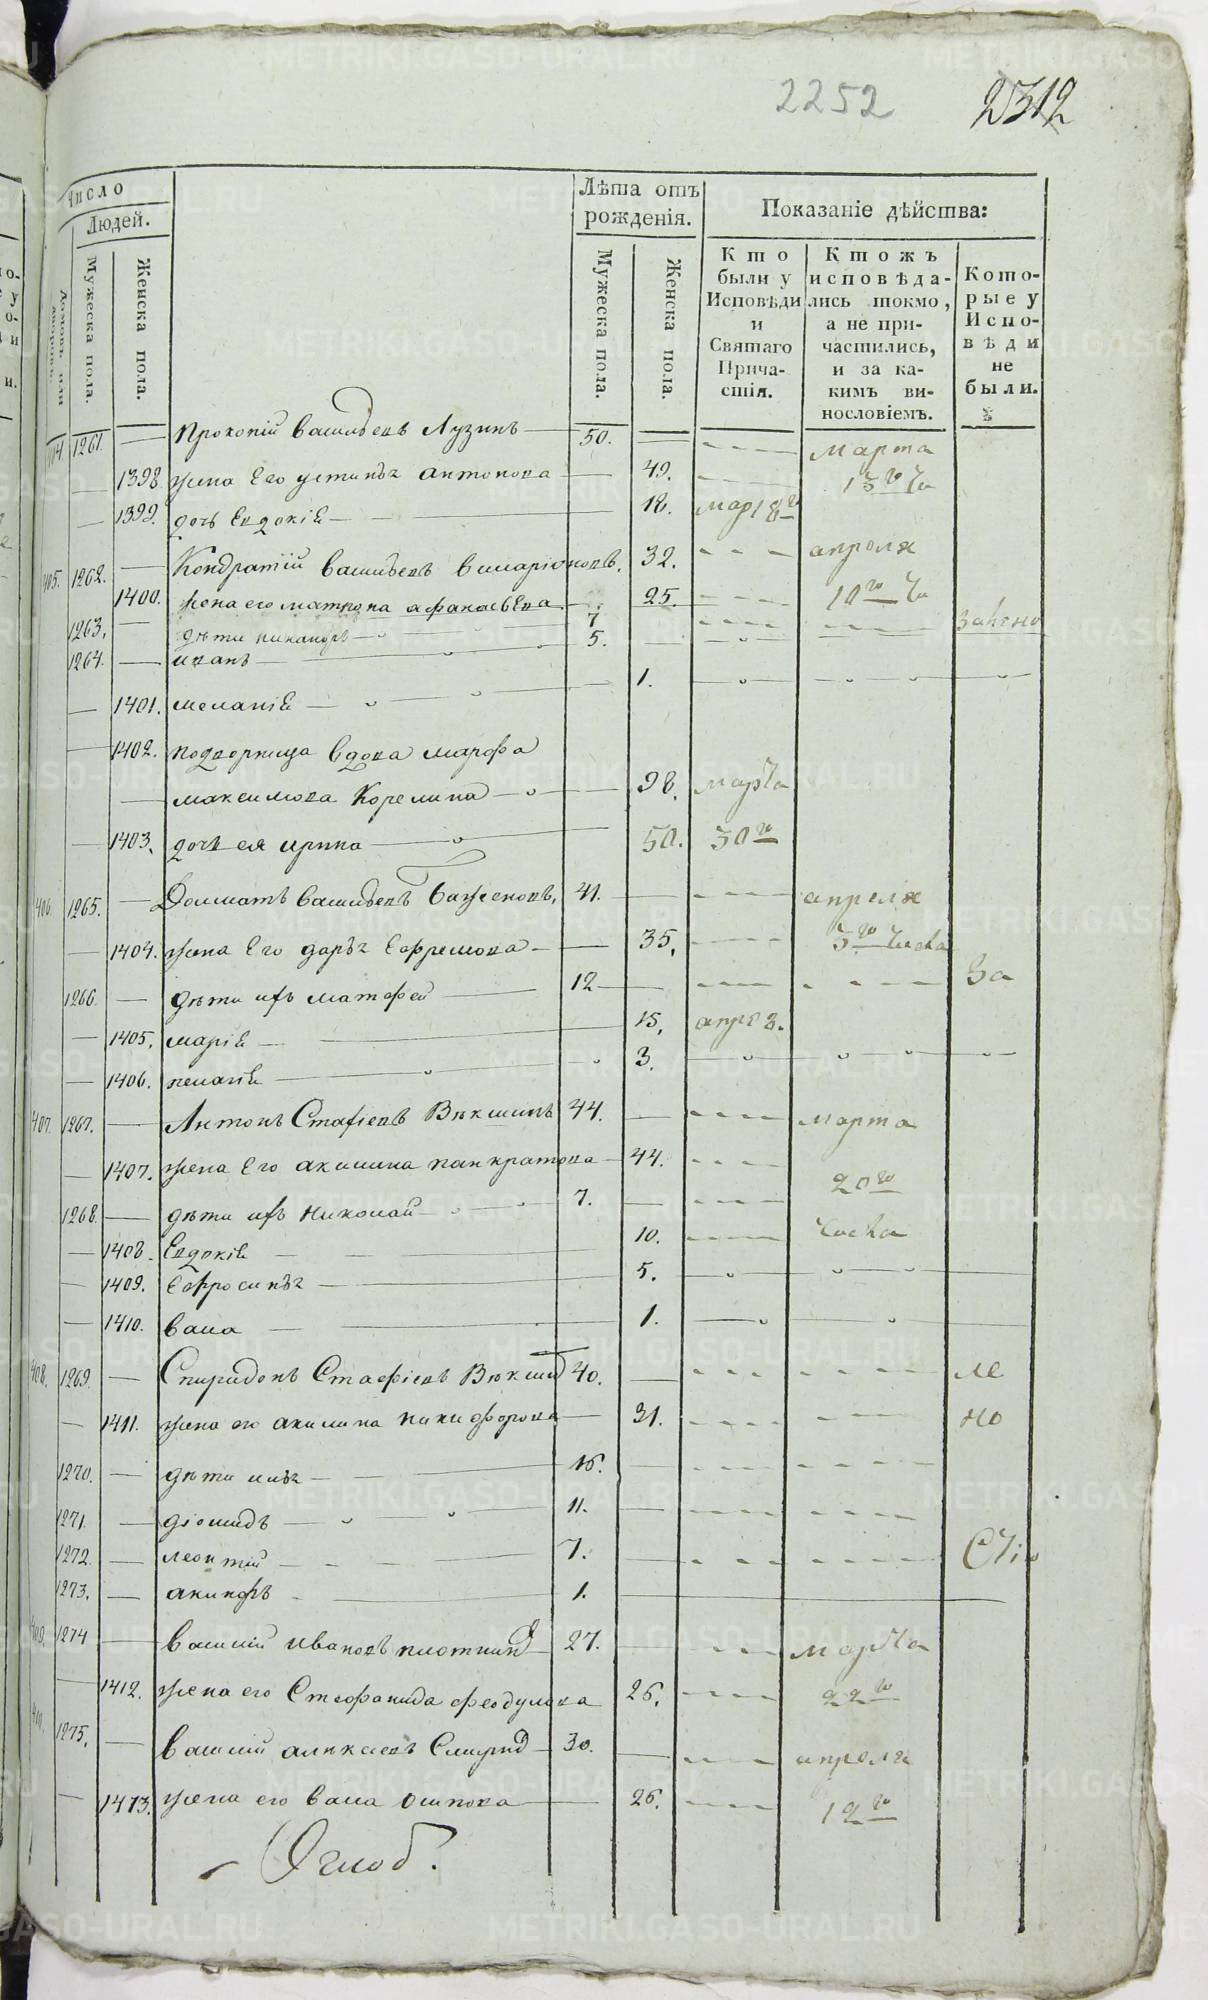 2252 2312
Число
Людей.
Домовъ или дворовъ.
Мужеска пола.
Женска пола.
Лѣта отъ рожденія.
Мужеска пола.
Женска пола.
Показаніе дѣйства:
Кто были у Исповѣди и Святаго Причастія.
Ктожъ исповѣдались токмо, а не причастились, и за какимъ винословіемъ.
Которые у Исповѣди не были.
1261. Прокопій Васильевъ Лузинъ 50. марта
1398. жена его устинья антонова 49. 13го
1399. дочь Евдокія 18. мар 18го
405. 1262. Кондратій Васильевъ 32. апреля
1400. жена его матрона афанасьева 25. 10го
1263. дѣти никаноръ 7
1264. иванъ 5.
1401. меланія 1.
1402. подворница вдова марфа
максимова Корелина 98. марта
1403. дочь ея ирина 50. 30го
406. 1265. Долматъ Васильевъ Баженовъ. 41. апреля
1404. жена Его дарья Ефремова 35. 3го
1266. дѣти ихъ матфей 12 За
1405. марія 15. апре 3.
1406. пелагія 3.
407. 1267. Антонъ Стафіевъ Вѣкшинъ 44. марта
1407. жена Его акилина панкратова 44. 20го
1268. дѣти ихъ николай 7.
1408. Евдокія 10.
1409. Ефросинья 5.
1410. васса 1.
408. 1269. Спиридонъ Стафіевъ Вѣкшин 40.
1411. жена его акилина никифорова 31. но
1270. дѣти 16.
1271. діомидъ 11.
1272. леонтій 7.
1273. 1.
409. 1274 Василій Ивановъ плотник 27. марта
1412. жена его Стефанида феодулова 26. 22го
410. 1275. Василій алексеевъ Смирн 30. апреля
1413. жена его васса осипова 26. 12го